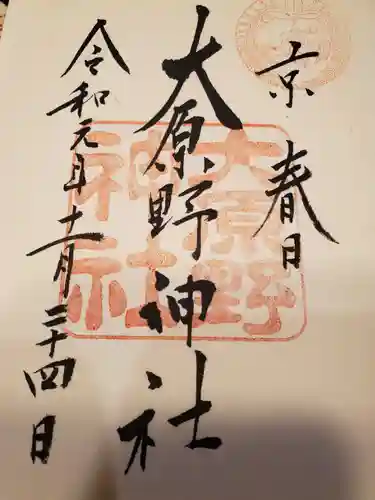 京春日
大原野神社
令和元年十一月二十四日
大原野
神社